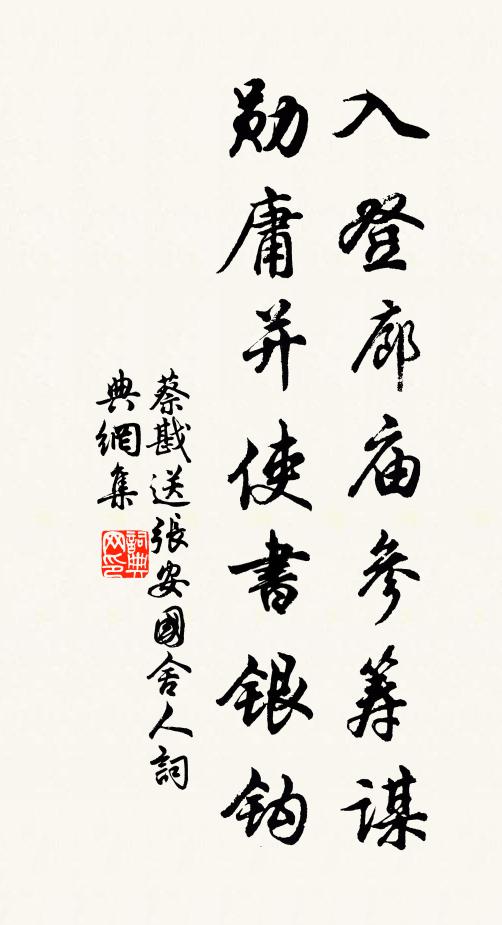 入登廊庙參筹謀
勋庸并使書银钩
蔡戡送張安國舍人詞
典網集
詞典网印